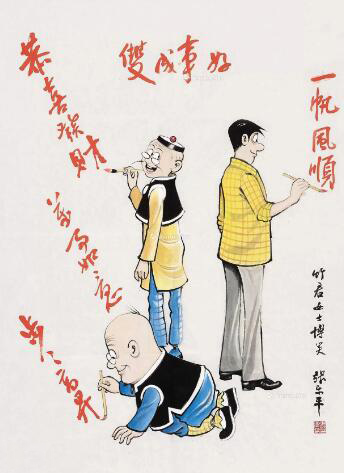 好事成雙
一帆風順
恭喜發財
萬事如意
步步高升
竹君女士博笑 張樂平